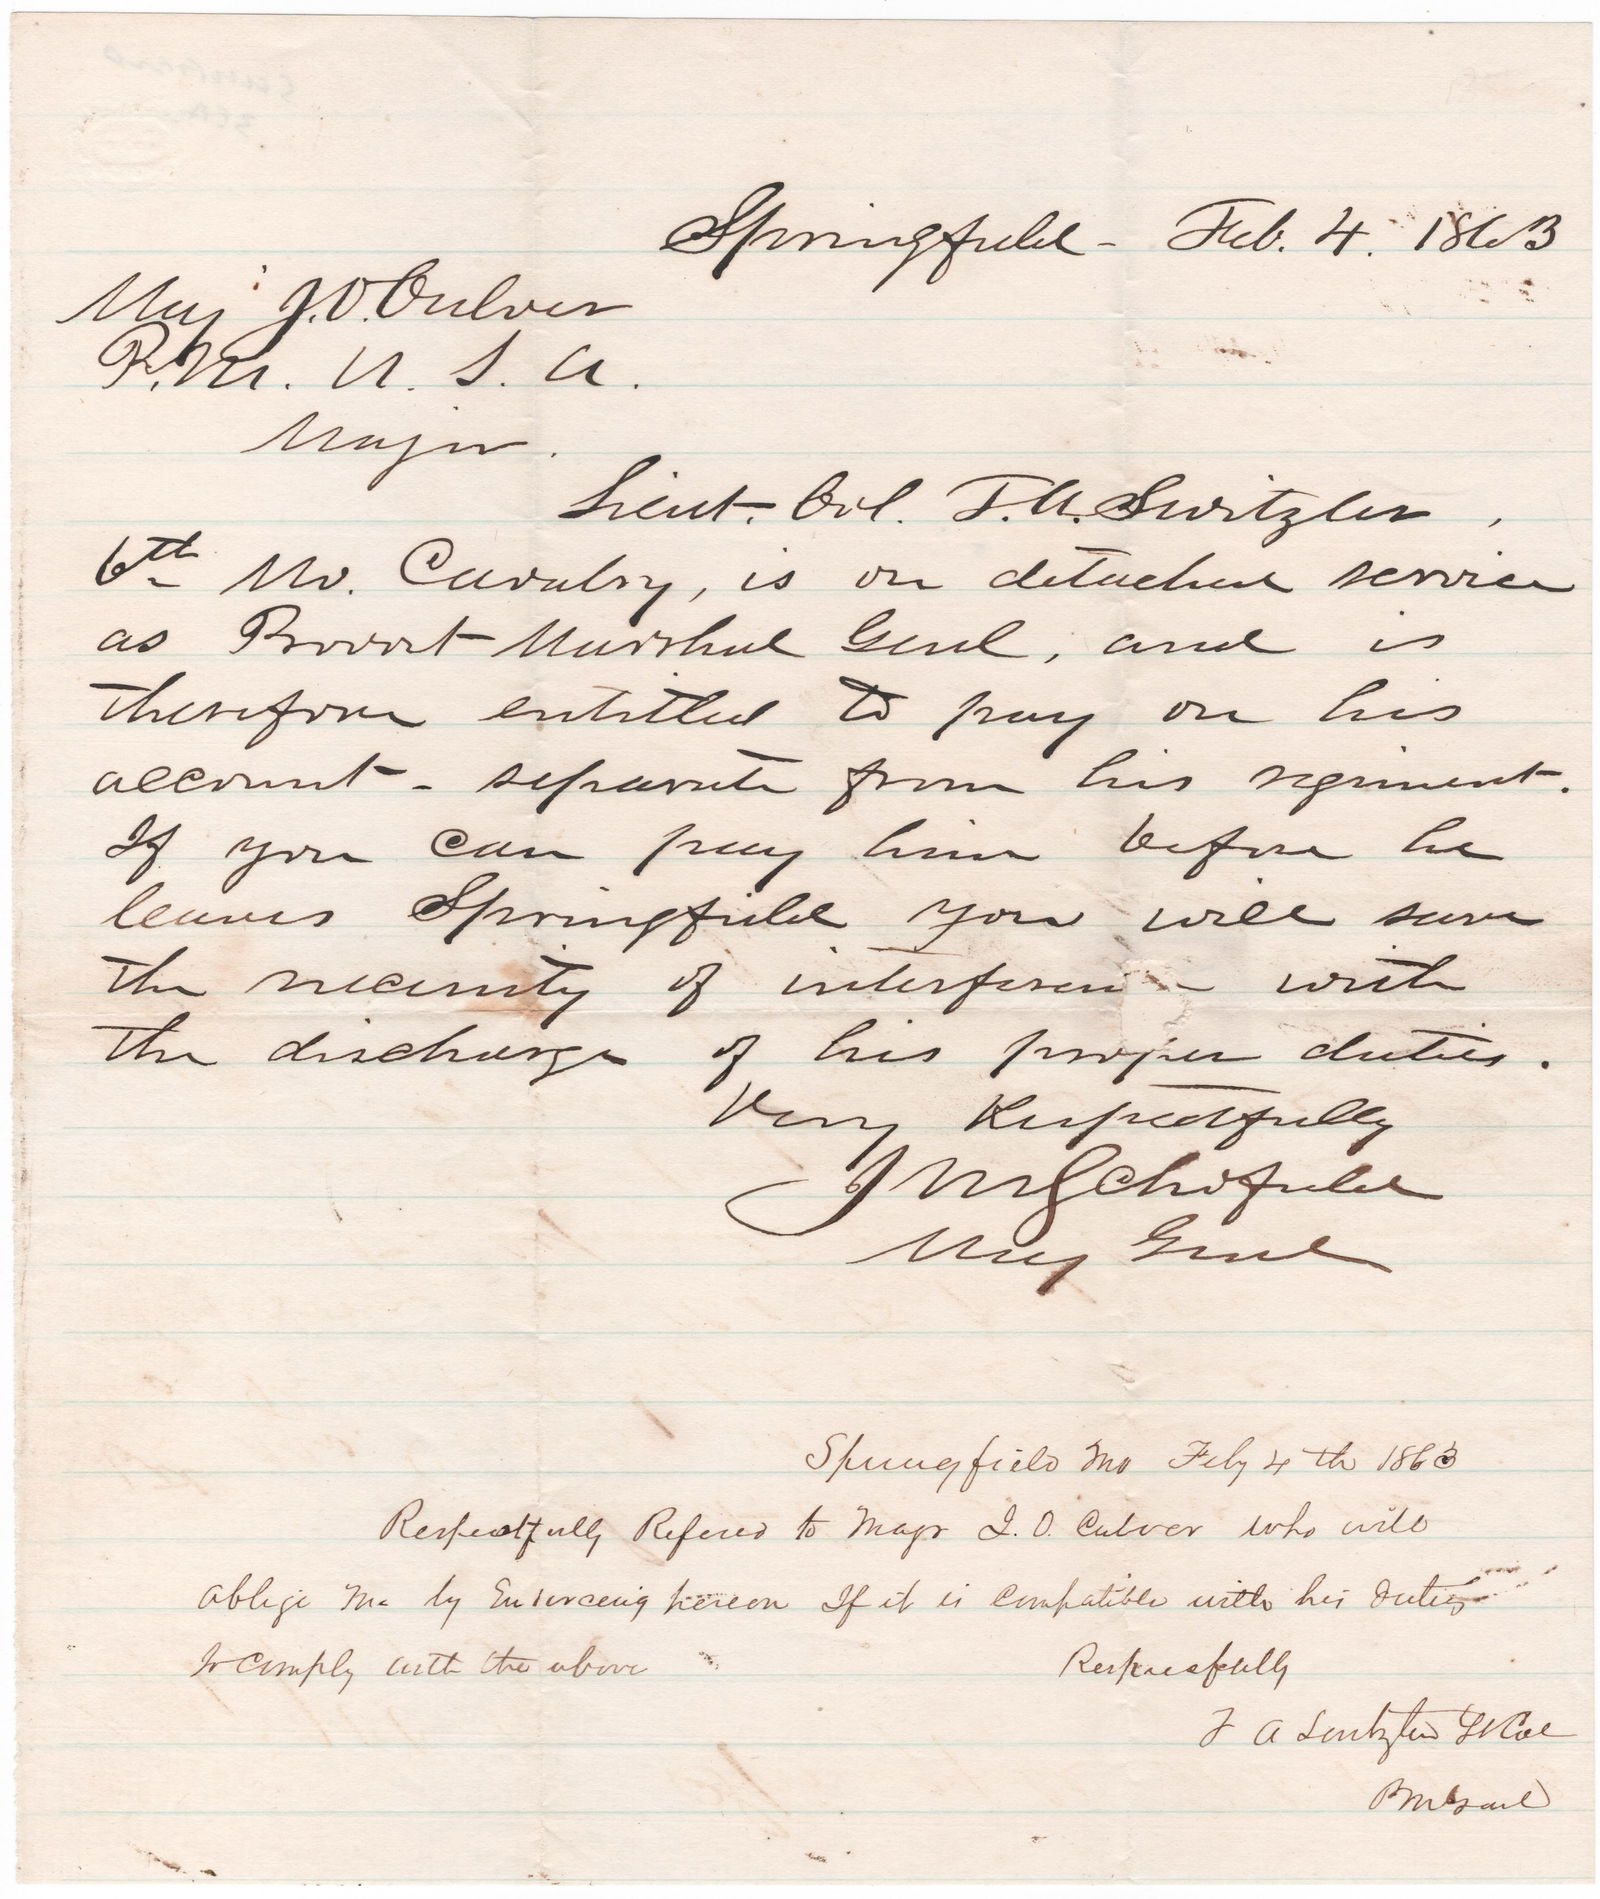 Springfield - Feb. 4. 1863
Maj J.O. Culver
P.M. U. S. A.
Major.
Lieut. Col. T.A. Switzler,
6th Mo. Cavalry, is on detached service
as Provost Marshal Genl, and is
therefore entitled to pay on his
account - separate from his regiment.
If you can pay him before he
leaves Springfield you will save
the necessity of interference with
the discharge of his proper duties.
Very Respectfully
J M Schofield
Maj Genl
Springfield Mo Feby 4th 1863
Respectfully Refered to Majr J. O. Culver who will
oblige Me by Endorceing hereon If it is Compatible with his Duties
to Comply with the above
Respectfully
T A Switzler Lt Col
P M Genl